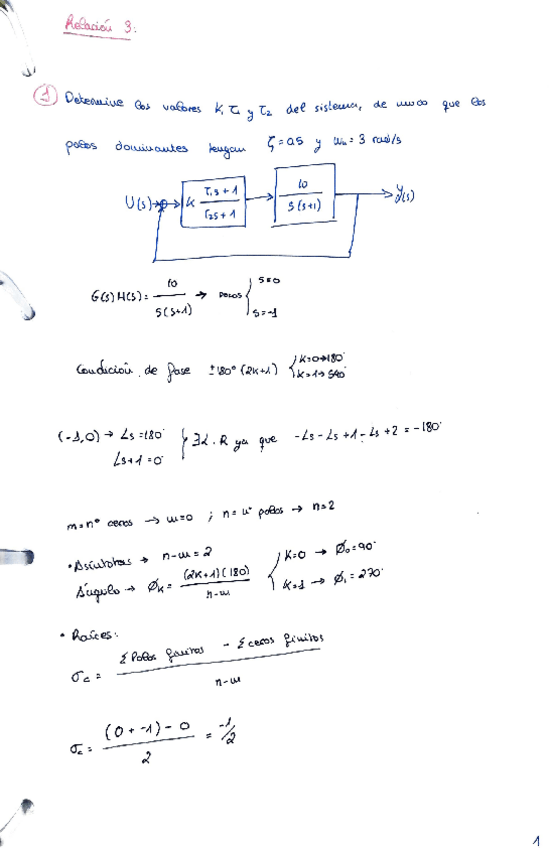 Relación 3:
1 Determine los valores K, τ1 y τ2 del sistema, de modo que los
polos dominantes tengan ζ=0.5 y ωn=3 rad/s
U(s) K τ1s+1 / τ2s+1 10 / s(s+1) Y(s)
G(s)H(s) = 10 / s(s+1) → polos { s=0 s=-1
Condición de fase ±180°(2K+1) { K=0→180° K=1→540°
(-1,0) → ∠s=180° ∠s+1=0 } ∃L.R ya que -∠s-∠s+1-∠s+2=-180°
m=nº ceros → m=0 ; n=nº polos → n=2
• Asíntotas → n-m=2
Ángulo → ϕK = (2K+1)(180) / n-m { K=0 → ϕ0=90° K=1 → ϕ1=270°
• Raíces:
σc = Σ Polos finitos - Σ ceros finitos / n-m
σc = (0+-1)-0 / 2 = -1/2
1